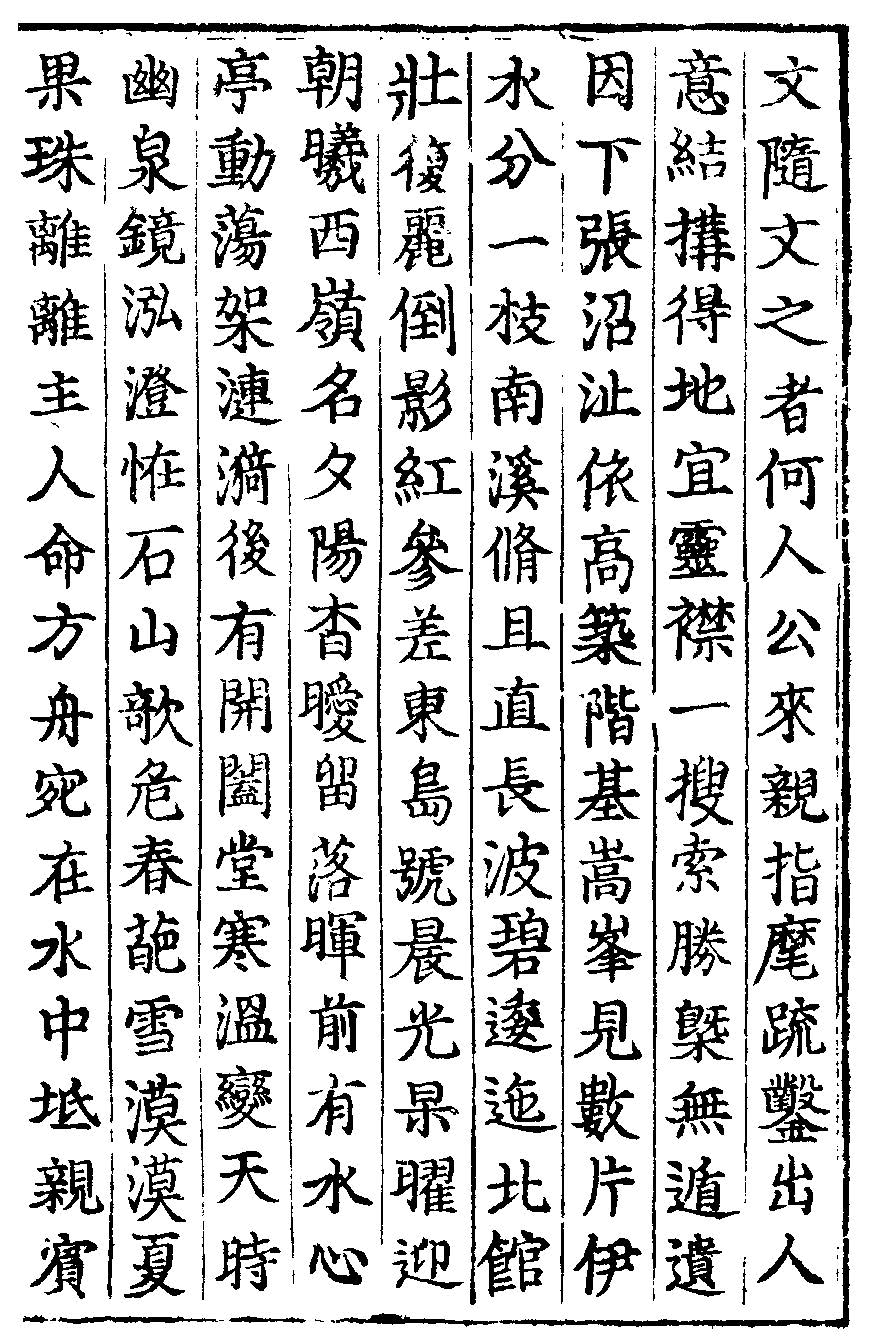 文隨文之者何人公來親指麾疏鑿出人
意結搆得地宜靈襟一搜索勝槩無遁遺
因下張沼沚依高築階基嵩峯見數片伊
水分一枝南溪脩且直長波碧逶迤北館
壯復麗倒影紅參差東島號晨光杲曜迎
朝曦西嶺名夕陽杳曖留落暉前有水心
亭動蕩架漣漪後有開闔堂寒溫變天時
幽泉鏡泓澄怪石山欹危春葩雪漠漠夏
果珠離離主人命方舟宛在水中坻親賓